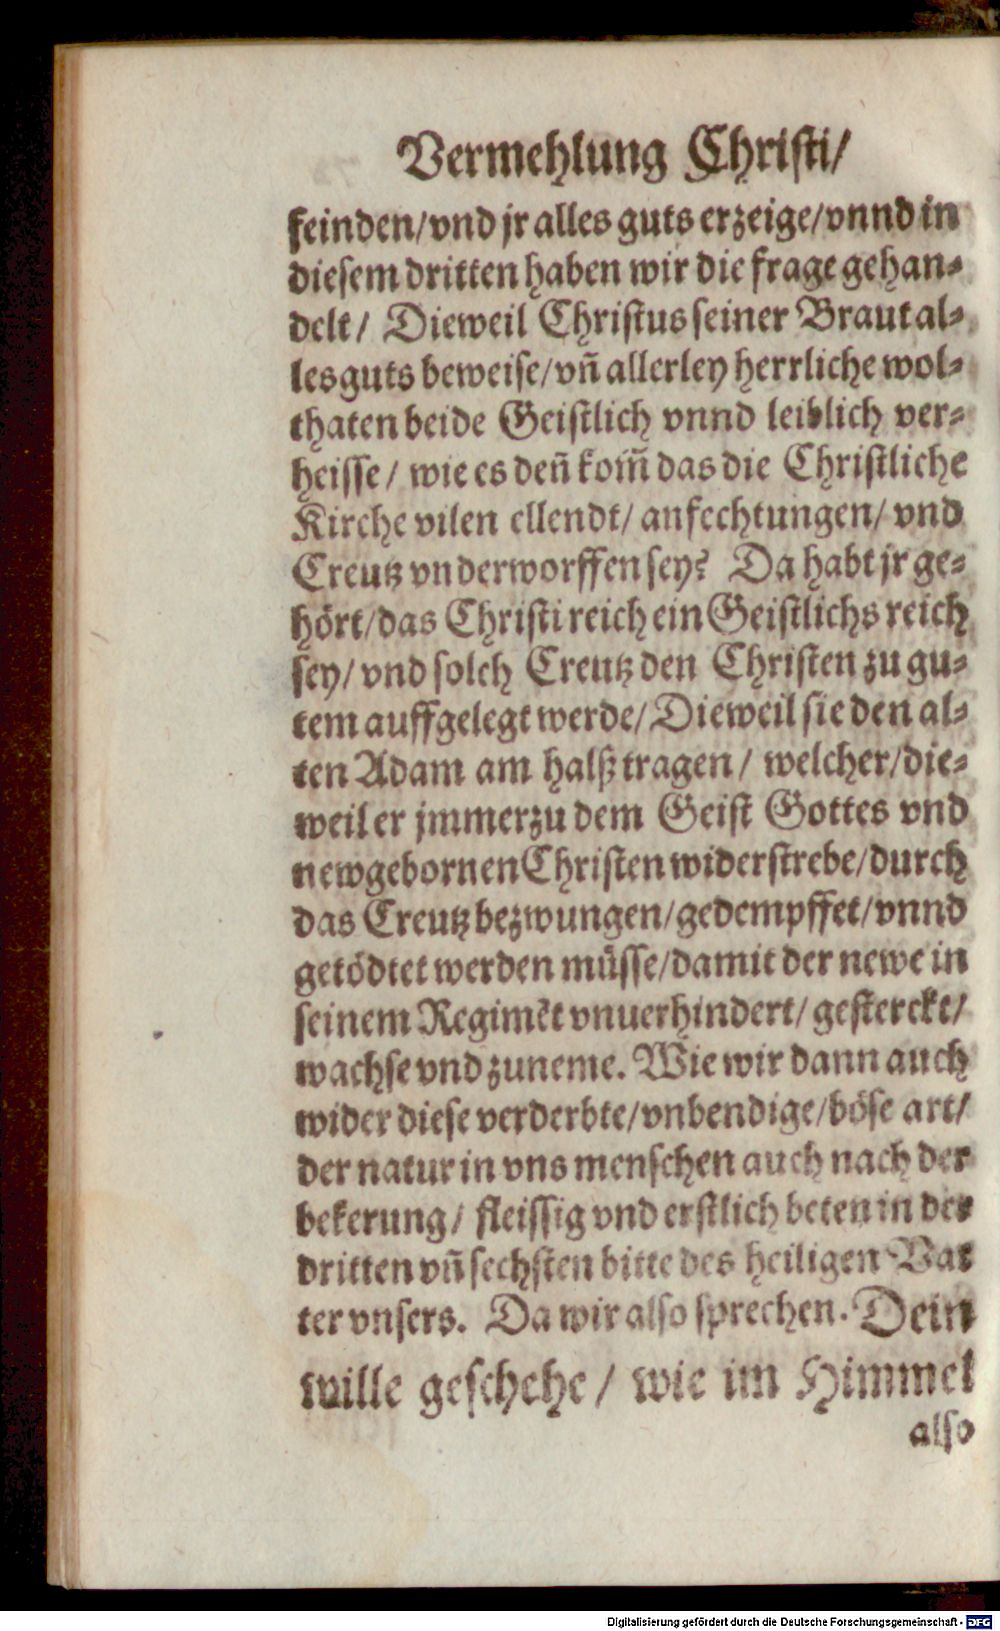 Vermehlung Christi/
feinden/vnd jr alles guts erzeige/vnnd in
diesem dritten haben wir die frage gehan⸗
delt/ Dieweil Christus seiner Braut al⸗
les guts beweise/vñ allerley herrliche wol⸗
thaten beide Geistlich vnnd leiblich ver⸗
heisse/ wie es deñ kom̃ das die Christliche
Kirche vilen ellendt/ anfechtungen/ vnd
Creutz vnderworffen sey? Da habt jr ge⸗
hört/das Christi reich ein Geistlichs reich
sey/ vnd solch Creutz den Christen zu gu⸗
tem auffgelegt werde/ Dieweil sie den al⸗
ten Adam am halß tragen/ welcher/die⸗
weil er jmmerzu dem Geist Gottes vnd
newgebornen Christen widerstrebe/durch
das Creutz bezwungen/gedempffet/vnnd
getödtet werden müsse/damit der newe in
seinem Regimẽt vnuerhindert/ gesterckt/
wachse vnd zuneme. Wie wir dann auch
wider diese verderbte/vnbendige/böse art/
der natur in vns menschen auch nach der
bekerung/ fleissig vnd erstlich beten in der
dritten vñ sechsten bitte des heiligen Vat
ter vnsers. Da wir also sprechen. Dein
wille geschehe/ wie im Himmel
also
Digitalisierung gefördert durch die Deutsche Forschungsgemeinschaft - DFG